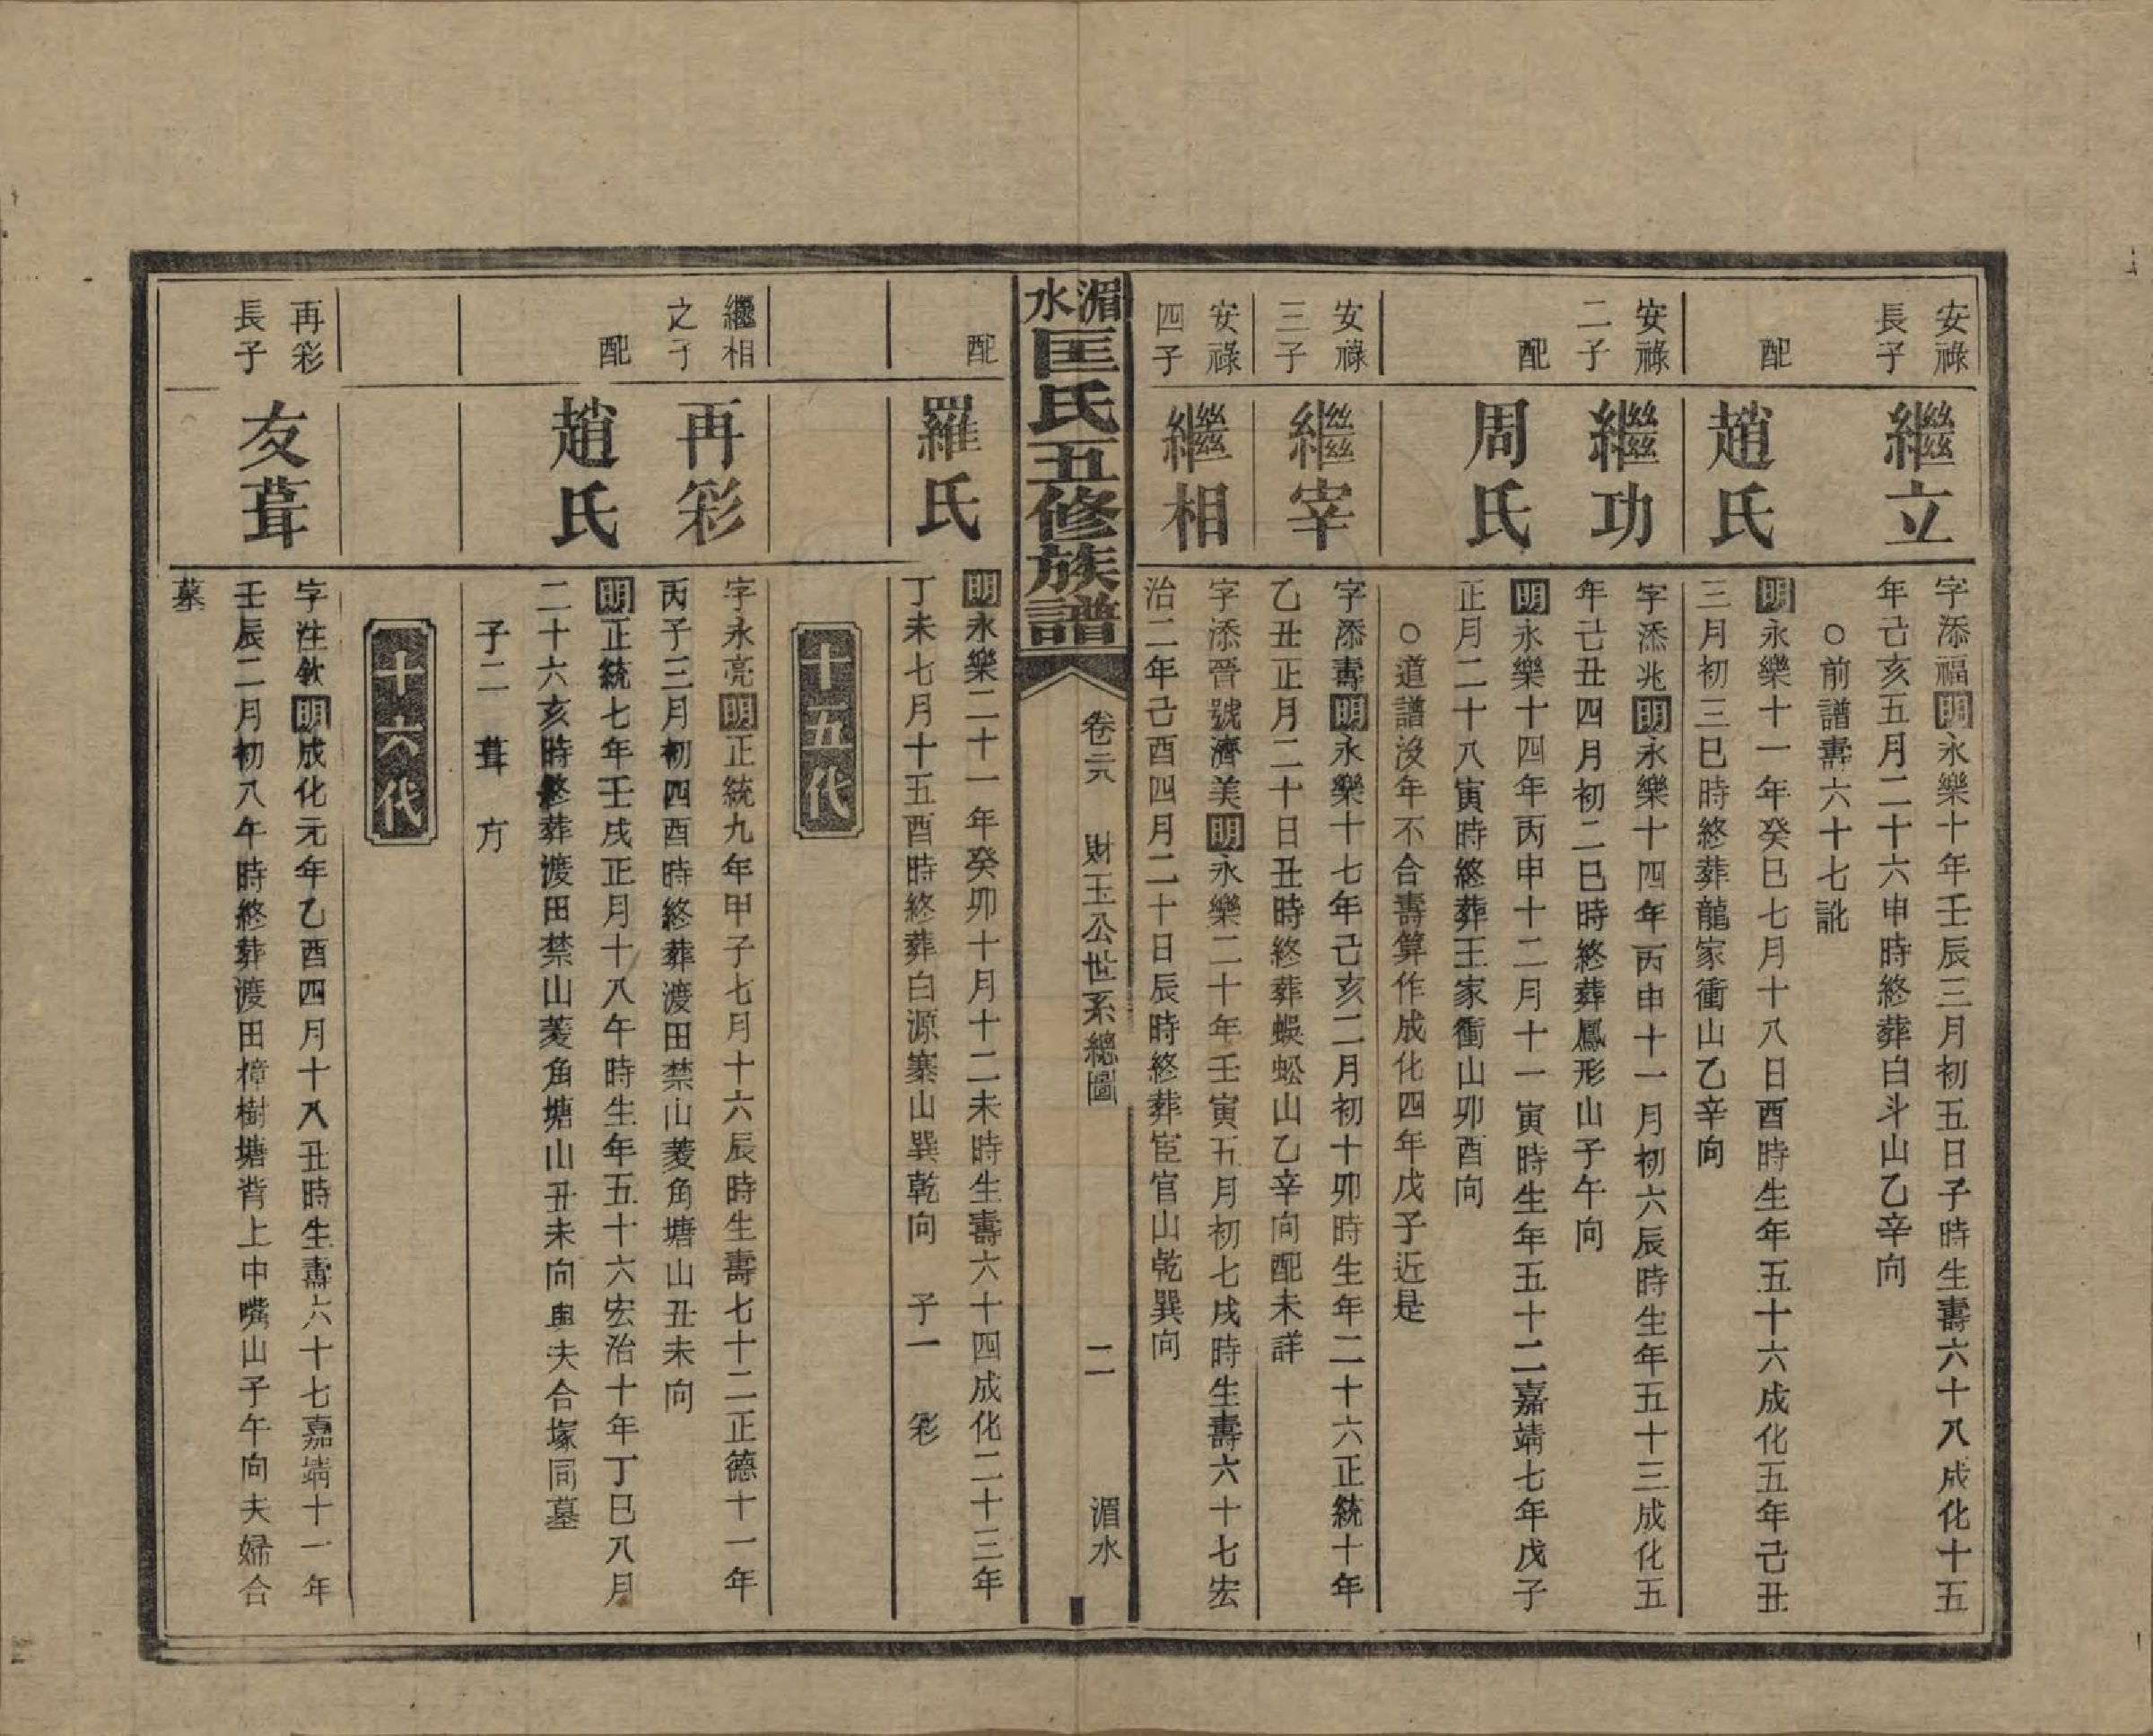 安祿
長子
繼立
字添福明永樂十年壬辰三月初五日子時生壽六十八成化十五
年己亥五月二十六申時終葬白斗山乙辛向
○前譜壽六十七訛
配
趙氏
明永樂十一年癸巳七月十八日酉時生年五十六成化五年己丑
三月初三巳時終葬龍家衝山乙辛向
安祿
二子
繼功
字添兆明永樂十四年丙申十一月初六辰時生年五十三成化五
年己丑四月初二巳時終葬鳳形山子午向
配
周氏
明永樂十四年丙申十二月十一寅時生年五十二嘉靖七年戊子
正月二十八寅時終葬王家衝山卯酉向
○道譜沒年不合壽算作成化四年戊子近是
安祿
三子
繼宰
字添壽明永樂十七年己亥二月初十卯時生年二十六正統十年
乙丑正月二十日丑時終葬蜈蚣山乙辛向配未詳
安祿
四子
繼相
字添晉號濟美明永樂二十年壬寅五月初七戌時生壽六十七宏
治二年己酉四月二十日辰時終葬宦官山乾巽向
湄水
匡氏五修族譜
卷二六 財玉公世系總圖
二
湄水
配
羅氏
明永樂二十一年癸卯十月十二未時生壽六十四成化二十三年
丁未七月十五酉時終葬白源寨山巽乾向 子一 彩
十五代
繼相
之子
再彩
字永亮明正統九年甲子七月十六辰時生壽七十二正德十一年
丙子三月初四酉時終葬渡田禁山菱角塘山丑未向
配
趙氏
明正統七年壬戌正月十八午時生年五十六宏治十年丁巳八月
二十六亥時終葬渡田禁山菱角塘山丑未向與夫合塚同墓
子二 葺 方
十六代
再彩
長子
友葺
字性欽明成化元年乙酉四月十八丑時生壽六十七嘉靖十一年
壬辰二月初八午時終葬渡田樟樹塘背上中嘴山子午向夫婦合
墓